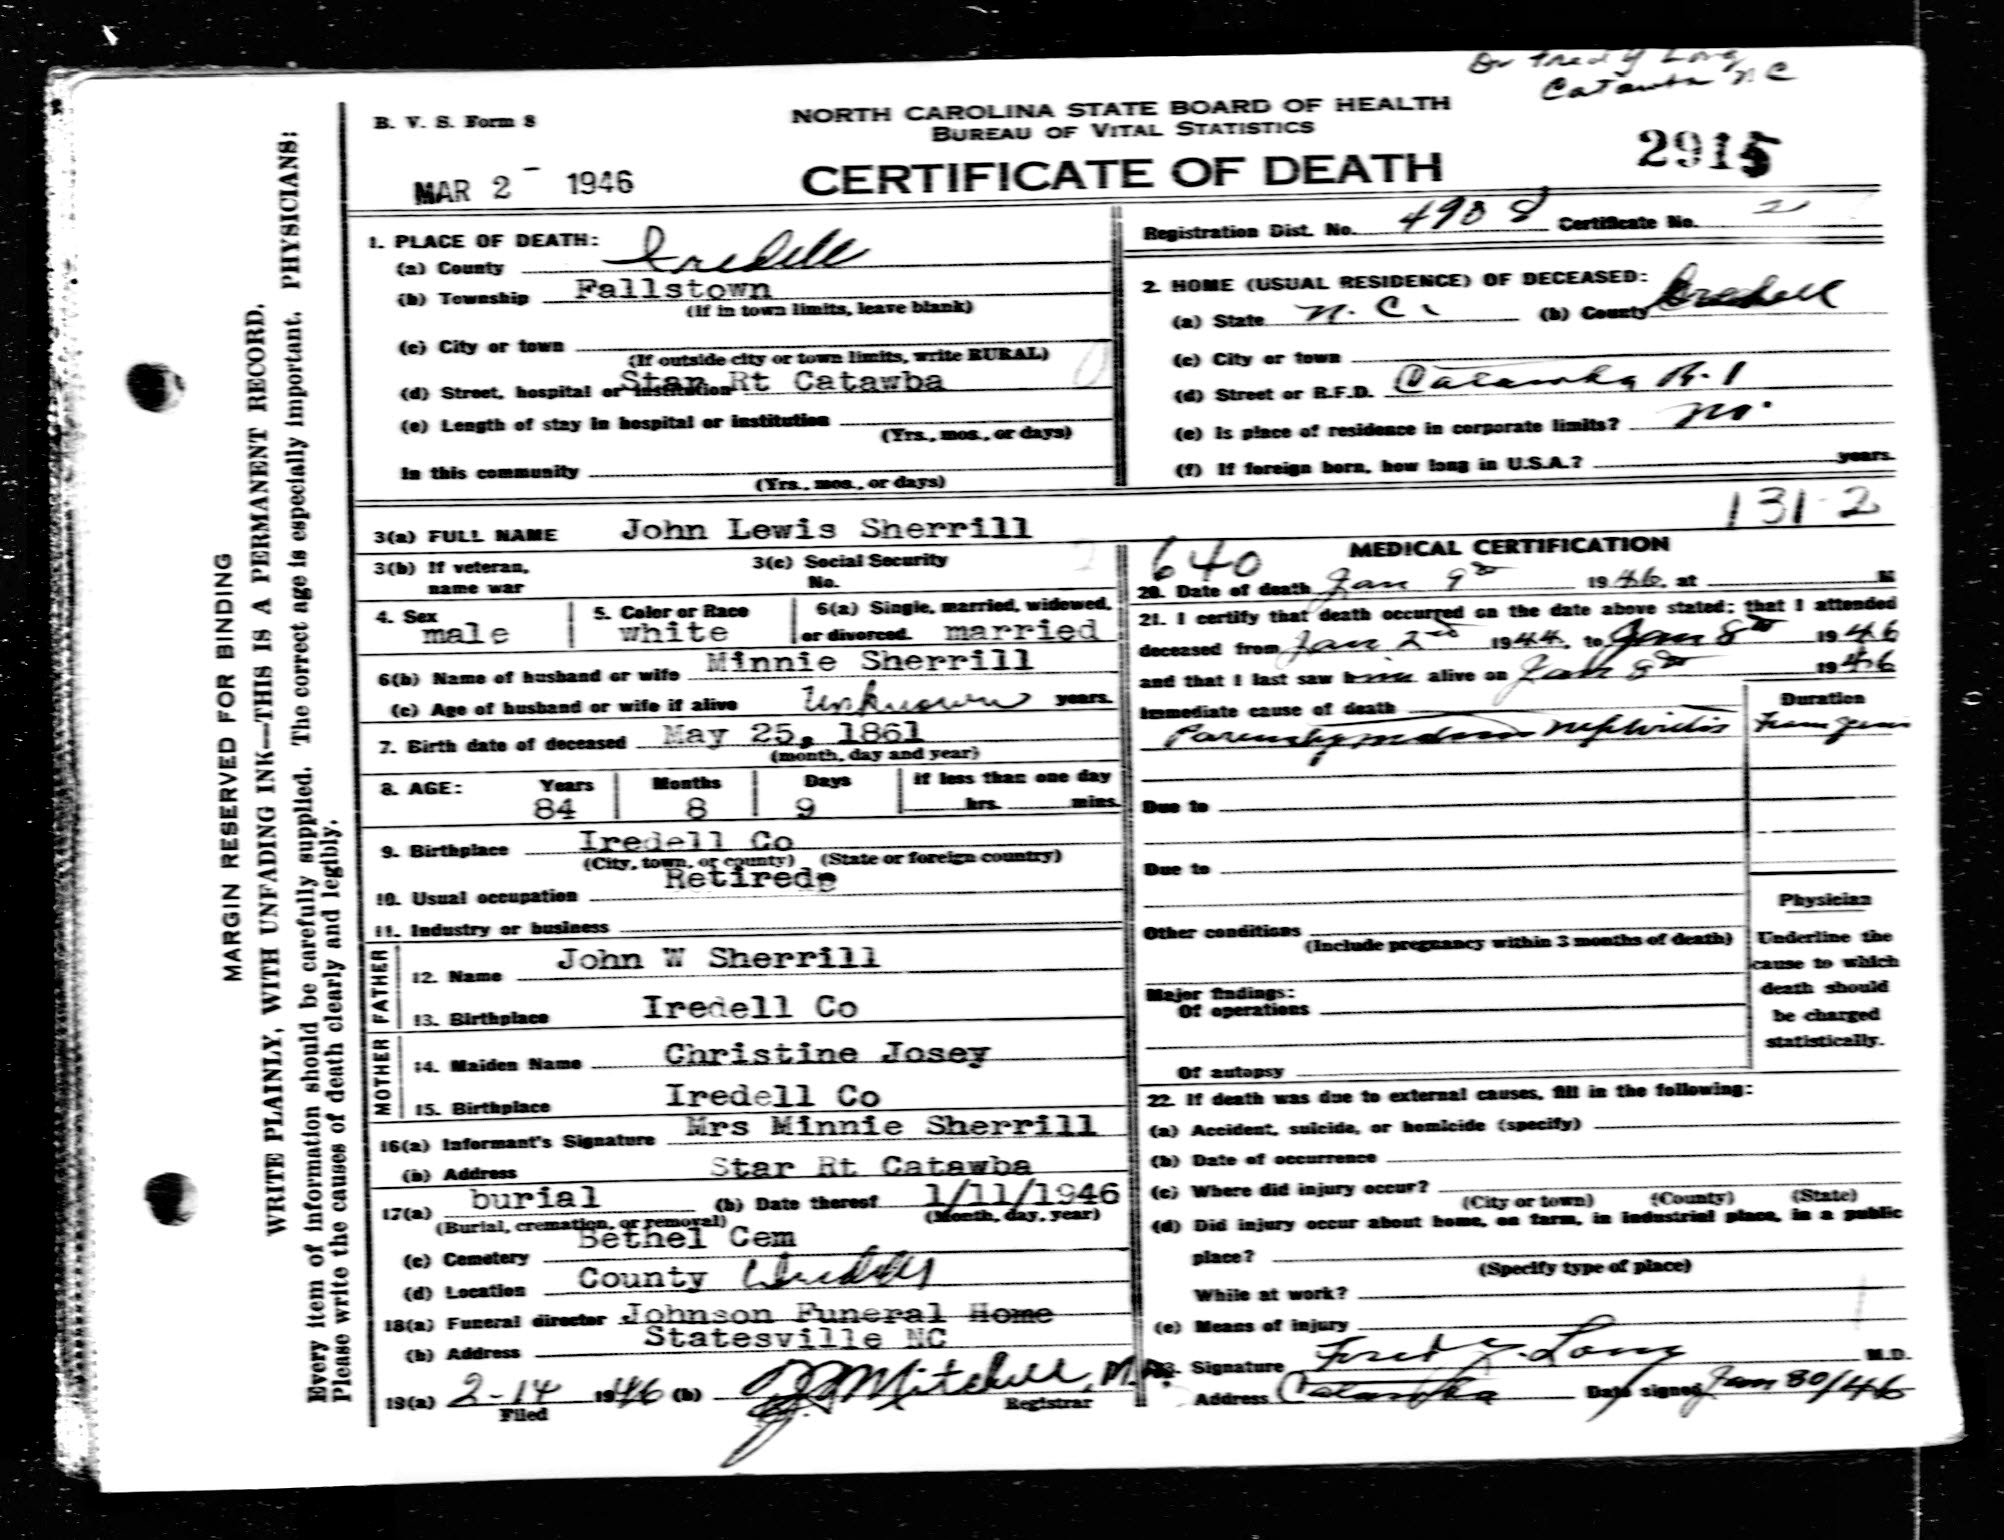 Dr Fred Y Long
Catawba N C
B. V. S. Form 8
NORTH CAROLINA STATE BOARD OF HEALTH
BUREAU OF VITAL STATISTICS
MAR 2 - 1946
CERTIFICATE OF DEATH
2915
Registration Dist. No. 4908 Certificate No. 2
1. PLACE OF DEATH:
(a) County Iredell
(b) Township Fallstown
(If in town limits, leave blank)
(c) City or town
(If outside city or town limits, write RURAL)
(d) Street, hospital or institution Star Rt Catawba
(e) Length of stay in hospital or institution
(Yrs., mos., or days)
In this community
(Yrs., mos., or days)
2. HOME (USUAL RESIDENCE) OF DECEASED:
(a) State N. C. (b) County Iredell
(c) City or town
(d) Street or R.F.D. Catawba R-1
(e) Is place of residence in corporate limits? no.
(f) If foreign born, how long in U.S.A.? years.
131-2
3(a) FULL NAME John Lewis Sherrill
3(b) If veteran, name war
3(c) Social Security No.
4. Sex male
5. Color or Race white
6(a) Single, married, widowed, or divorced. married
6(b) Name of husband or wife Minnie Sherrill
(c) Age of husband or wife if alive Unknown years.
7. Birth date of deceased May 25, 1861
(month, day and year)
8. AGE: Years Months Days If less than one day
84 8 9 hrs. mins.
9. Birthplace Iredell Co
(City, town, or county) (State or foreign country)
10. Usual occupation Retired
11. Industry or business
FATHER
12. Name John W Sherrill
13. Birthplace Iredell Co
MOTHER
14. Maiden Name Christine Josey
15. Birthplace Iredell Co
16(a) Informant's Signature Mrs Minnie Sherrill
(b) Address Star Rt Catawba
17(a) burial (b) Date thereof 1/11/1946
(Burial, cremation, or removal) (Month, day, year)
(c) Cemetery Bethel Cem
(d) Location County Iredell
18(a) Funeral director Johnson Funeral Home
(b) Address Statesville NC
19(a) 2-14 1946 (b) Mitchell, M.D.
Filed Registrar
640 MEDICAL CERTIFICATION
20. Date of death Jan 9th 1946, at M
21. I certify that death occurred on the date above stated; that I attended
deceased from Jan 2nd 1944, to Jan 8th 1946
and that I last saw him alive on Jan 8th 1946
Immediate cause of death Duration
Parenchymatous Nephritis
Due to
Due to
Other conditions
(Include pregnancy within 3 months of death)
Major findings:
Of operations
Of autopsy
Physician
Underline the
cause to which
death should
be charged
statistically.
22. If death was due to external causes, fill in the following:
(a) Accident, suicide, or homicide (specify)
(b) Date of occurrence
(c) Where did injury occur?
(City or town) (County) (State)
(d) Did injury occur about home, on farm, in industrial place, in a public
place?
(Specify type of place)
While at work?
(e) Means of injury
23. Signature Fred Y. Long M.D.
Address Catawba Date signed Jan 30/46
MARGIN RESERVED FOR BINDING
WRITE PLAINLY, WITH UNFADING INK—THIS IS A PERMANENT RECORD.
Every item of information should be carefully supplied. The correct age is especially important. PHYSICIANS:
Please write the causes of death clearly and legibly.